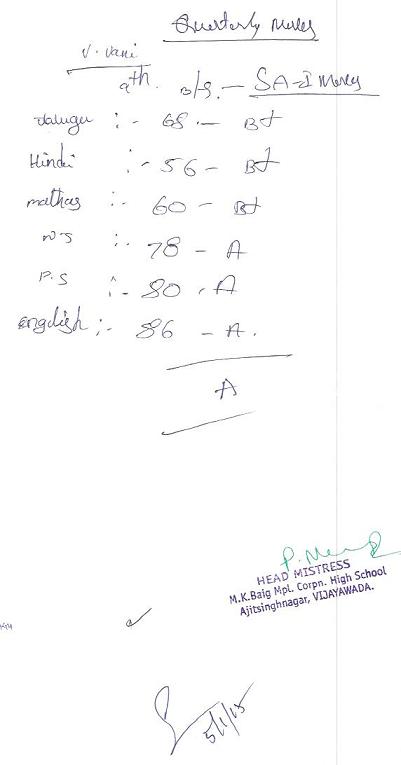 Quarterly Marks
V. Vani
9th. B/S. — SA-I Marks
Telugu :- 68 — B+
Hindi :- 56 — B+
mathas :- 60 — B+
N.S :- 78 — A
P.S :- 80 - A
english :- 86 — A.
A
HEAD MISTRESS
M.K.Baig Mpl. Corpn. High School
Ajitsinghnagar, VIJAYAWADA.
5/1/15